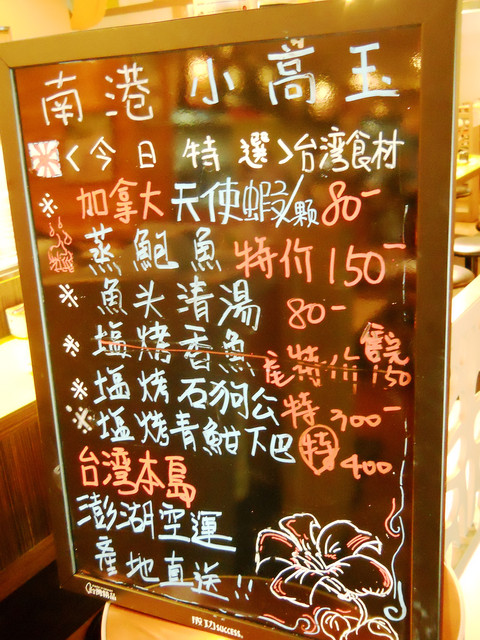 南港 小高玉
<今日特選>台湾食材
※加拿大天使蝦/顆 80-
蒸鮑魚 特价 150-
※魚头清湯 80-
※塩烤香魚 特价 150 售完
※塩烤石狗公 特 300-
※塩烤青魽下巴 特 400
台湾本島
澎湖空運
產地直送!!
SUCCESS.